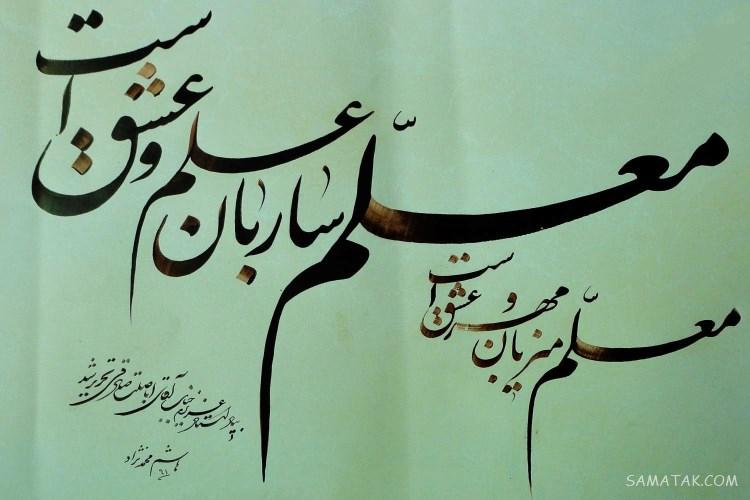 معلّم ساربان علم و عشق است
معلّم میزبان مهر و عشق است
بیاد استاد عزیزم جناب آقای
تحریر شد
هاشم محمدنژاد
SAMATAK.COM